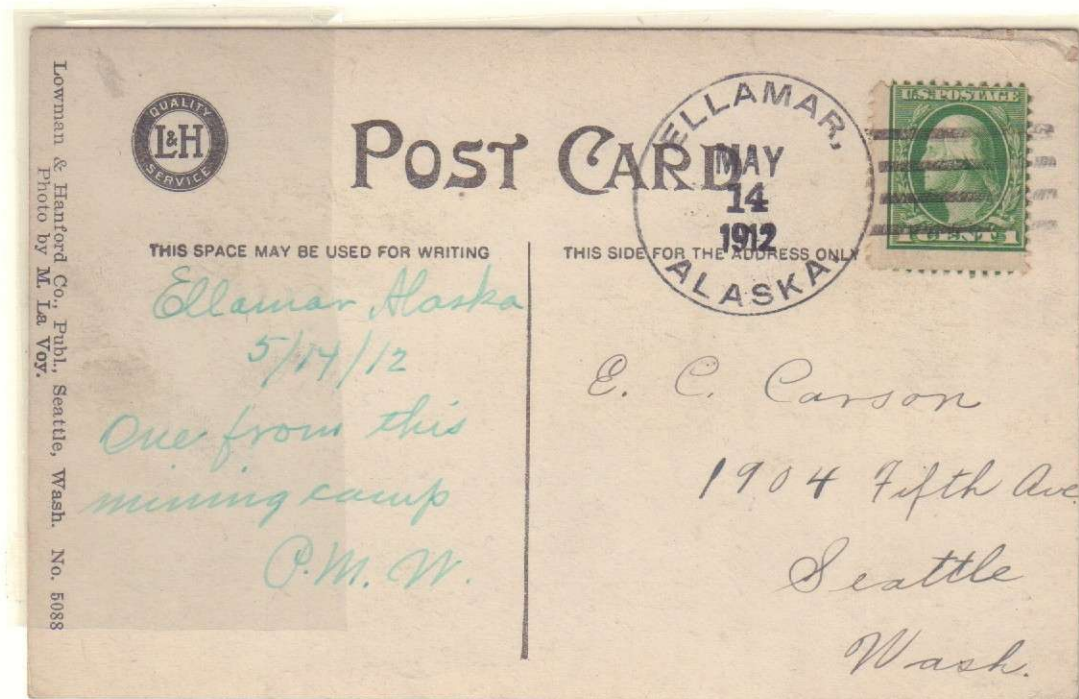 Lowman & Hanford Co., Publ., Seattle, Wash. No. 5088
Photo by M. La Voy.
QUALITY
L&H
SERVICE
POST CARD
ELLAMAR,
MAY
14
1912
ALASKA
U.S. POSTAGE
1 CENT 1
THIS SPACE MAY BE USED FOR WRITING
Ellamar Alaska
5/14/12
One from this
mining camp
P.M. W.
THIS SIDE FOR THE ADDRESS ONLY
E. C. Carson
1904 Fifth Ave.
Seattle
Wash.